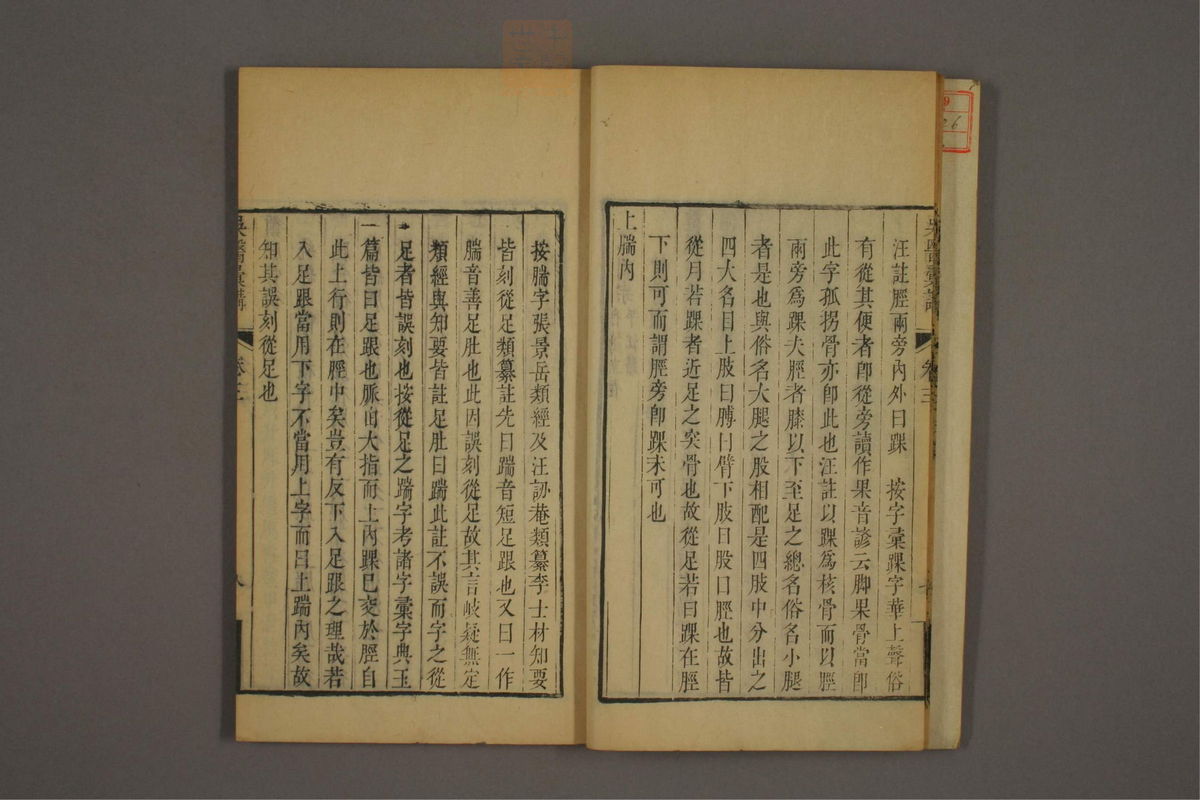 汪註脛兩旁內外曰踝　按字彙踝字華上聲俗
有從其便者卽從旁讀作果音諺云脚果骨當卽
此字孤拐骨亦卽此也汪註以踝爲核骨而以脛
兩旁爲踝夫脛者膝以下至足之總名俗名小腿
者是也與俗名大腿之股相配是四肢中分出之
四大名目上肢曰膊曰臂下肢曰股曰脛也故皆
從月若踝者近足之突骨也故從足若曰踝在脛
下則可而謂脛旁卽踝未可也
上腨內
按腨字張景岳類經及汪訒菴類纂李士材知要
皆刻從足類纂註先曰踹音短足跟也又曰一作
腨音善足肚也此因誤刻從足故其言岐疑無定
類經與知要皆註足肚曰踹此註不誤而字之從
足者皆誤刻也按從足之踹字考諸字彙字典玉
篇皆曰足跟也脈由大指而上內踝巳交於脛自
此上行則在脛中矣豈有反下入足跟之理哉若
入足跟當用下字不當用上字而曰上踹內矣故
知其誤刻從足也
吳醫彙講
卷三
八